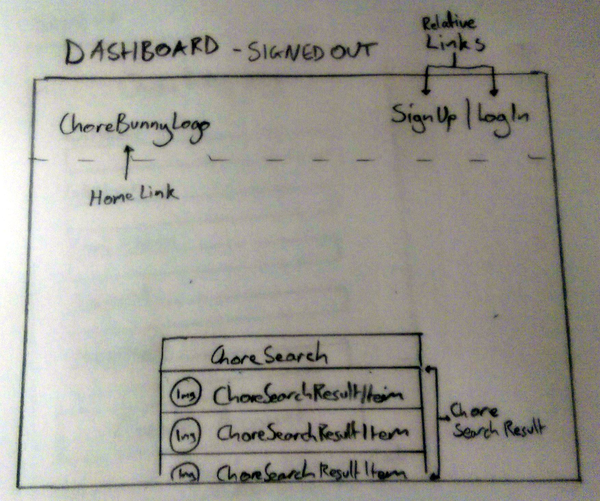 DASHBOARD - SIGNED OUT
Relative
Links
ChoreBunnyLogo
SignUp | LogIn
Home Link
ChoreSearch
Img ChoreSearchResultItem
Img ChoreSearchResultItem
Img ChoreSearchResultItem
Chore
Search Result